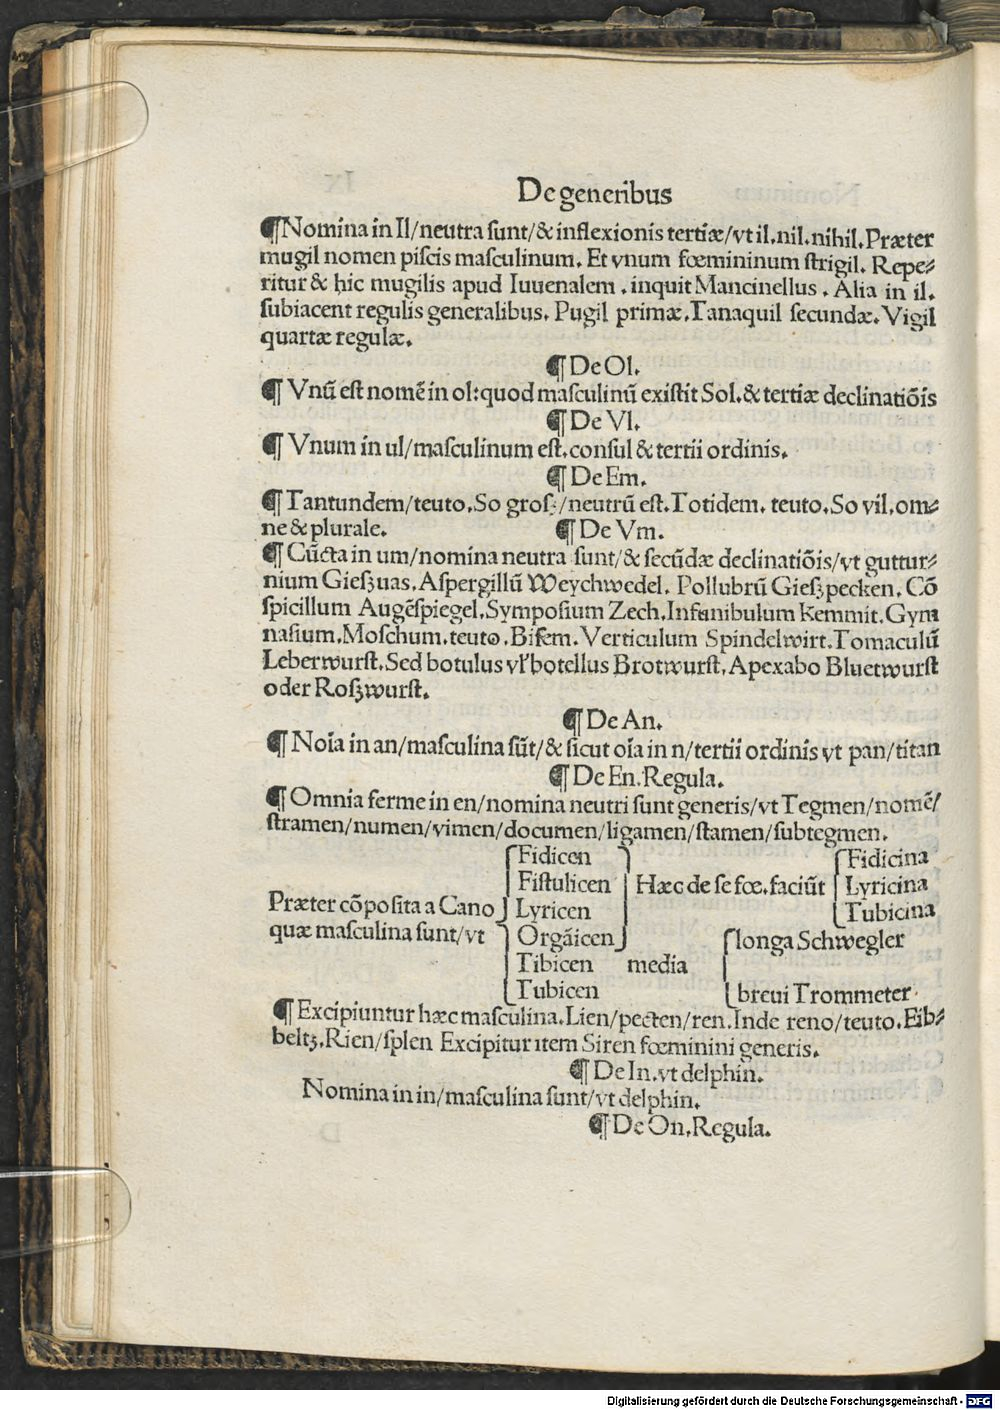 De generibus
¶Nomina in Il/neutra sunt/& inflexionis tertiæ/vt il.nil.nihil.Præter
mugil nomen piscis masculinum. Et vnum fœmininum strigil. Repe⸗
ritur & hic mugilis apud Iuuenalem . inquit Mancinellus . Alia in il.
subiacent regulis generalibus. Pugil primæ.Tanaquil secundæ.Vigil
quartæ regulæ.
¶De Ol.
¶ Vnū est nomē in ol:quod masculinū existit Sol.& tertiæ declinatiōis
¶De Vl.
¶ Vnum in ul/masculinum est.consul & tertii ordinis.
¶De Em.
¶Tantundem/teuto.So grosz/neutrū est.Totidem. teuto.So vil.om⸗
ne & plurale. ¶De Vm.
¶ Cūcta in um/nomina neutra sunt/& secūdæ declinatiōis/vt guttur⸗
nium Gieszuas.Aspergillū Weychwedel. Pollubrū Gieszpecken. Cō
spicillum Augēspiegel.Symposium Zech.Infunibulum Kemmit.Gym
nasium.Moschum.teuto.Bisem.Verticulum Spindelwirt.Tomaculū
Leberwurst.Sed botulus vl'botellus Brotwurst.Apexabo Bluetwurst
oder Roszwurst.
¶De An.
¶ Noīa in an/masculina sūt/& sicut oīa in n/tertii ordinis vt pan/titan
¶De En.Regula.
¶ Omnia ferme in en/nomina neutri sunt generis/vt Tegmen/nomē/
stramen/numen/vimen/documen/ligamen/stamen/subtegmen.
Præter cōposita a Cano
quæ masculina sunt/vt
Fidicen
Fistulicen
Lyricen
Orgāicen
Tibicen
Tubicen
Hæc de se fœ.faciūt
Fidicina
Lyricina
Tubicina
media
longa Schwegler
breui Trommeter
¶Excipiuntur hæc masculina.Lien/pecten/ren.Inde reno/teuto.Eib⸗
beltz.Rien/splen Excipitur item Siren fœminini generis.
¶De In.vt delphin.
Nomina in in/masculina sunt/vt delphin.
¶De On.Regula.
Digitalisierung gefördert durch die Deutsche Forschungsgemeinschaft - DFG